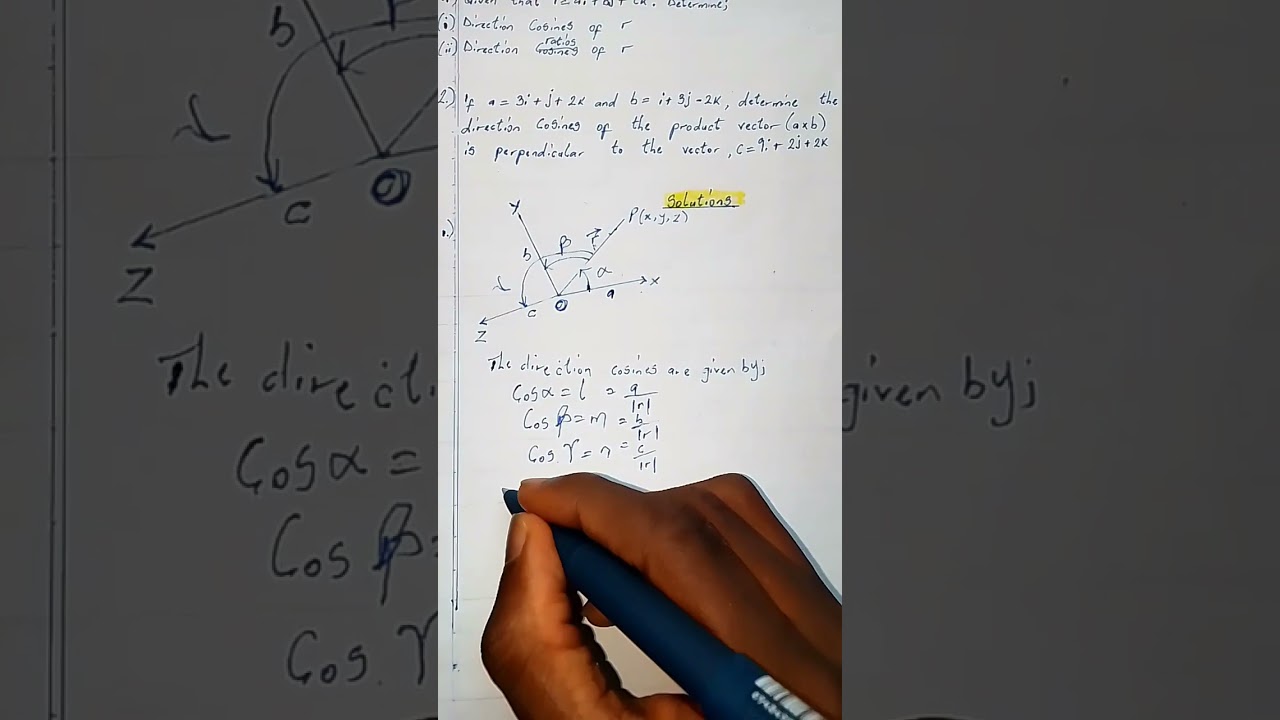 Given that r=ai+bj+ck. Determine;
(i) Direction Cosines of r
(ii) Direction ratios Cosines of r
2.) If a = 3i + j + 2k and b = i + 3j - 2k, determine the
direction Cosines of the product vector (a x b)
is perpendicular to the vector, c = 9i + 2j + 2k
Solutions
1.)
y
P(x, y, z)
b
β
r
α
γ
x
a
c
O
z
The direction cosines are given by;
Cos α = l = a/|r|
Cos β = m = b/|r|
Cos. γ = n = c/|r|
b
β
γ
O
c
Z
The directi
given by;
Cos α =
Cos β =
Cos. γ